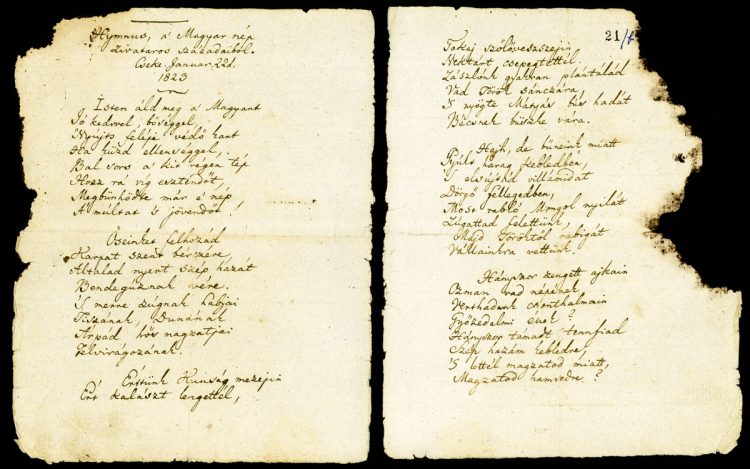 Hymnus, a' Magyar nép
Zivataros századaiból.
Cseke. Januar. 22d.
1823
Isten áldd meg a' Magyart
Jó kedvvel, bőséggel,
Nyújts feléje védő kart
Ha küzd ellenséggel,
Bal sors a' kit régen tép
Hozz rá víg esztendőt,
Megbűnhődte már e' nép
A' multat 's jövendőt!
Őseinket felhozád
Kárpát szent bérczére,
Általad nyert szép hazát
Bendegúznak vére.
'S merre zúgnak habjai
Tiszának, Dunának
Árpád hős magzatjai
Felvirágozának.
Értünk Kunság mezején
Ért kalászt lengettél,
21/
Tokaj szőlővesszején
Nektárt csepegtettél.
Zászlónk gyakran plántálád
Vad Török sánczára,
'S nyögte Mátyás bús hadát
Bécsnek büszke vára.
Hajh, de bűneink miatt
Gyúlt harag kebledben,
'S elsújtád villámidat
Dörgő fellegedben,
Most rabló Mongol nyilát
Zúgattad felettünk,
Majd Töröktől rabigát
Vállainkra vettünk.
Hányszor zengett ajkain
Ozman vad népének
Vert hadunk csonthalmain
Győzedelmi ének?
Hányszor támadt tennfiad
Szép hazám kebledre,
'S lettél magzatod miatt,
Magzatod hamvedre?